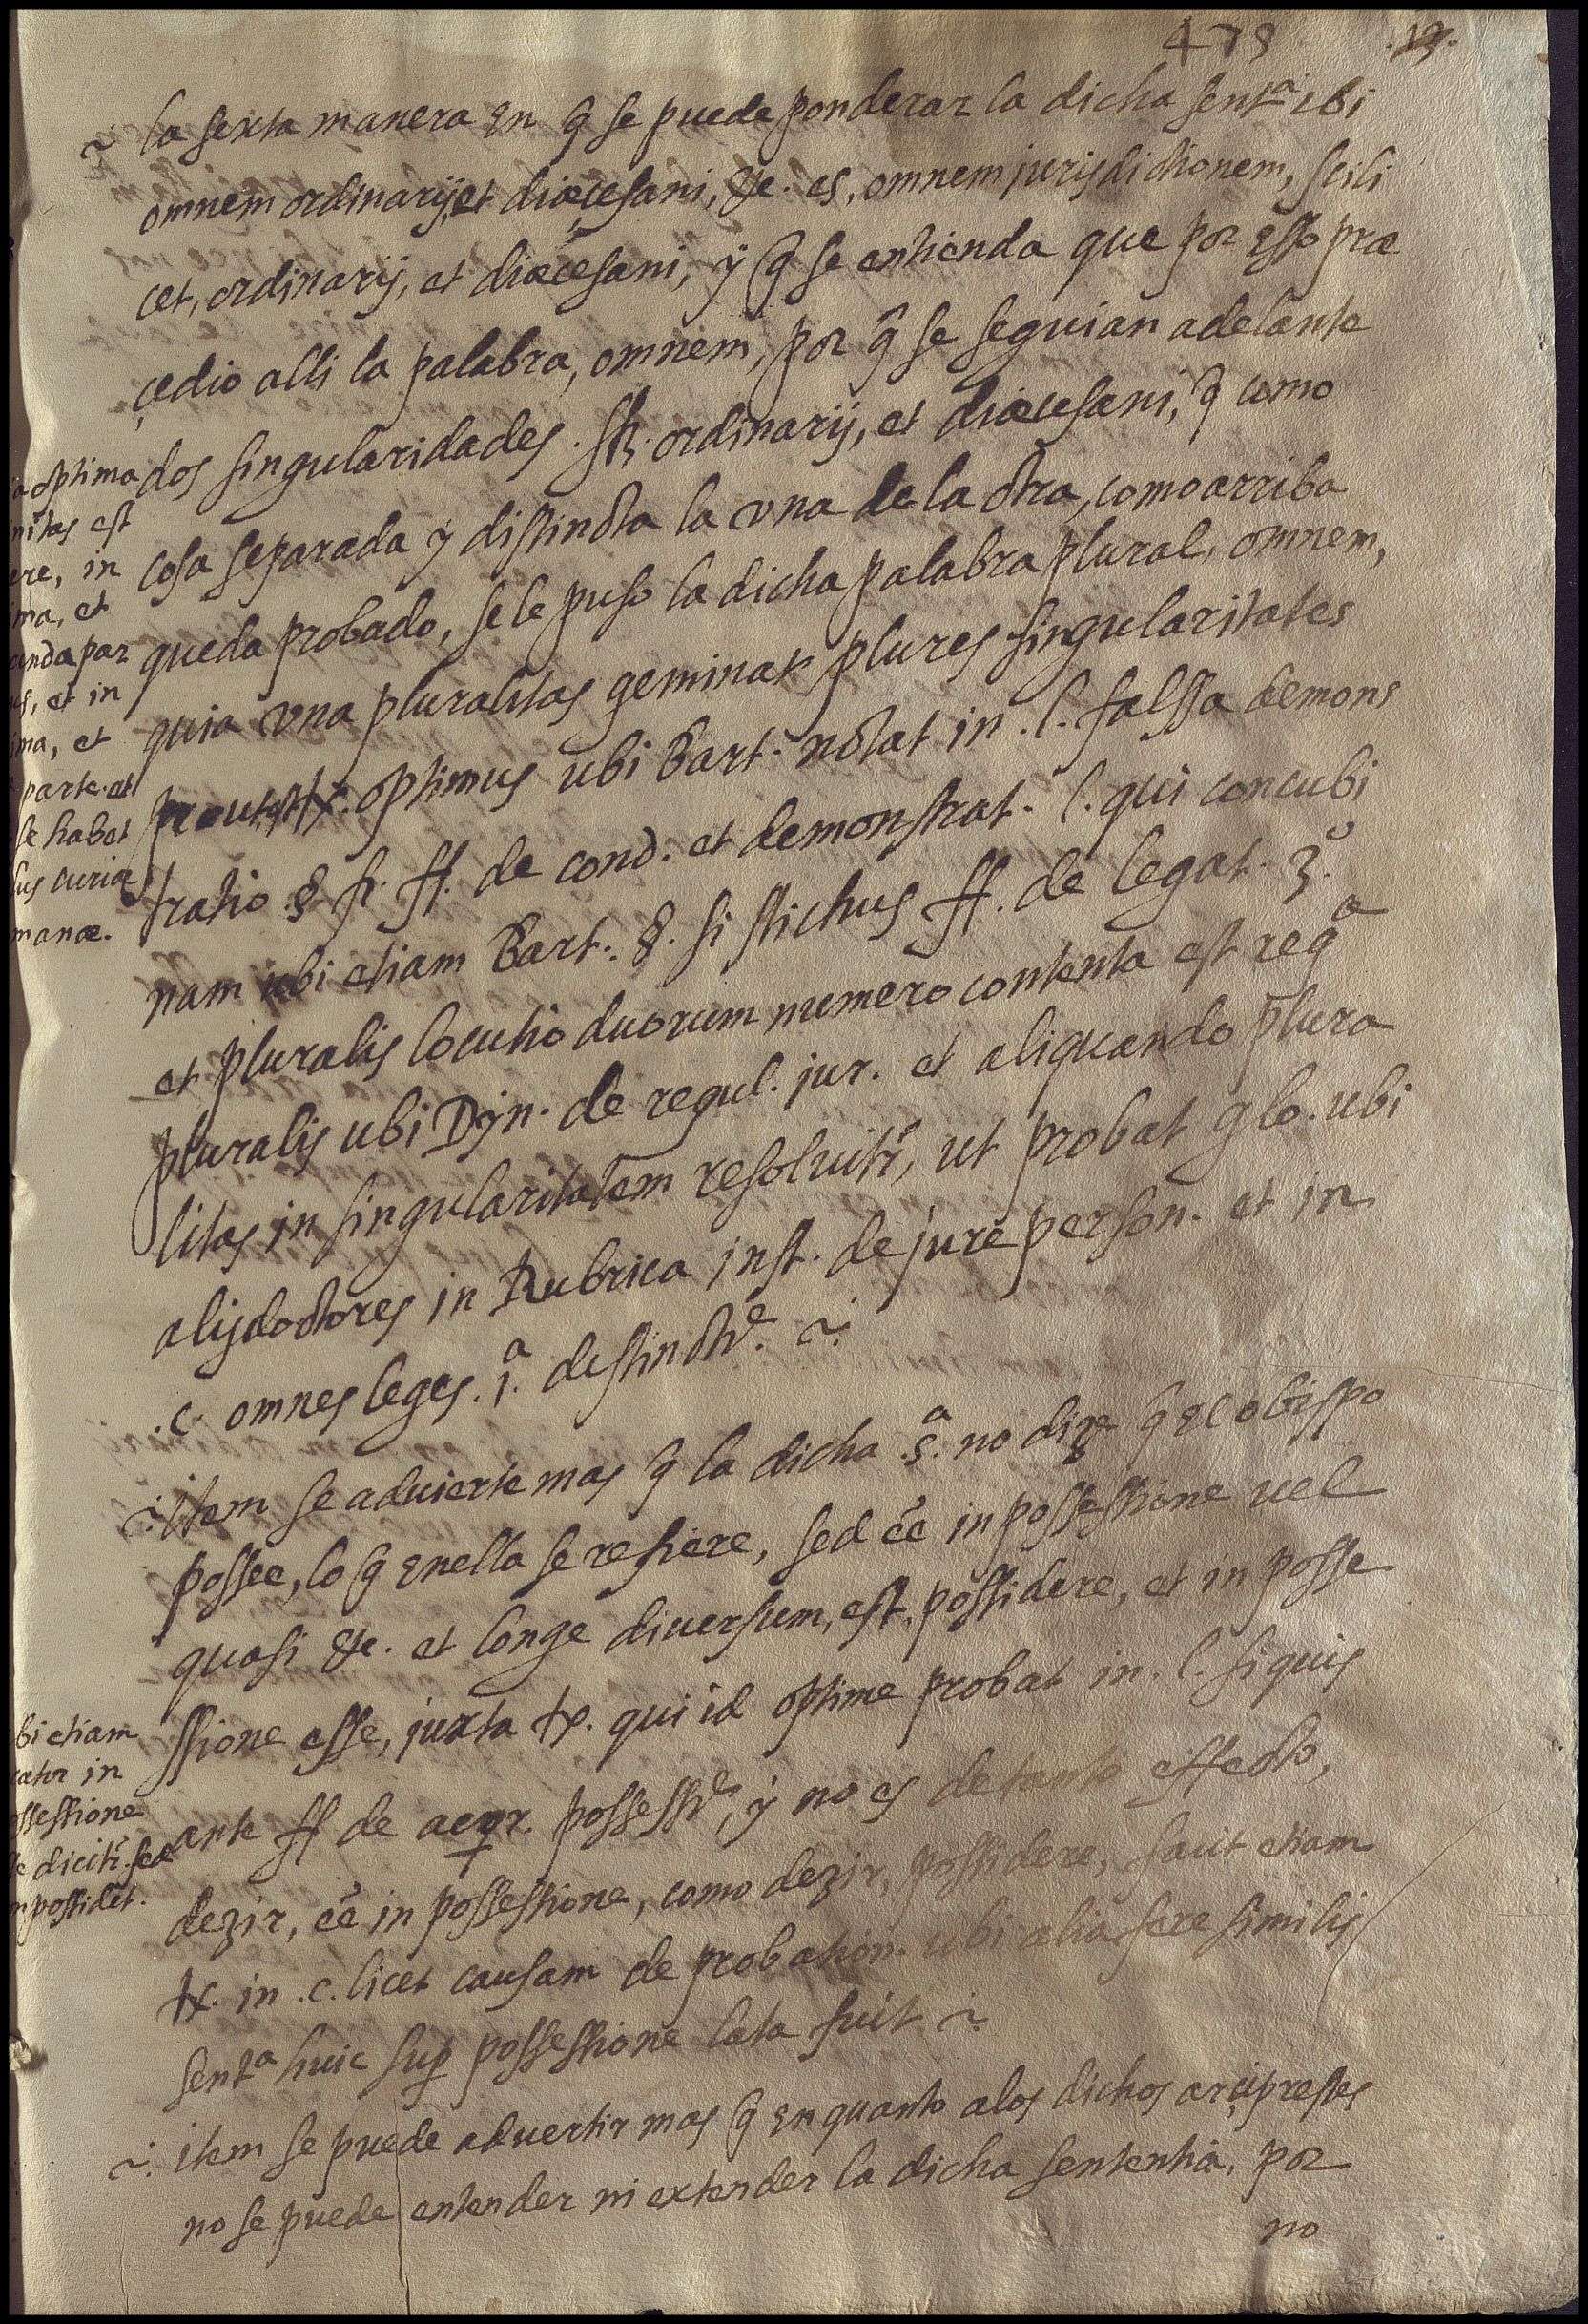 479 .19.
la sexta manera en q̃ se puede ponderar la dicha sentª ibi
omnem ordinarij, et diœcesani, &c. es, omnem jurisdictionem, scili
cet, ordinarij, et diœcesani, y q̃ se entienda que por esso præ
çedio alli la palabra, omnem, por q̃ se seguian adelante
dos singularidades. sħ. ordinarij, et diœcesani, q̃ como
cosa separada y distincta la vna de la otra, como arriba
queda probado, se le puso la dicha palabra plural, omnem,
quia vna pluralitas geminat plures singularitates
prout est tx. optimus ubi Bart. notat in .l. falssa demons
tratio .§ fi. ff. de cond. et demonstrat. l. qui concubi
nam ubi etiam Bart. §. si stichus ff. de legat. 3º.
et pluralis locutio duorum numero contenta est regª
pluralis ubi Dyn. de regul. jur. et aliquando plura
litas in singularitatem resoluitr, ut probat glo. ubi
alij doctores in Rubrica inst. de jure person. et in
.c. omnes leges. 1ª. destinctⁿᵉ.
item se aduierte mas q̃ la dicha .sª. no dize q̃ el obispo
possee, lo q̃ en ella se refiere, sed eẽ in possessione uel
quasi &c. et longe diuersum, est, possidere, et in posse
ssione esse, juxta tx. qui id optime probat in .l. si quis
ante ff de acqr. possessⁿᵉ, y no es de tanto effecto,
dezir, eẽ in possessione, como dezir, possidere, facit etiam
tx. in .c. licet causam de probation. ubi alia fere similis
sentª huic sup possessione lata fuit
item se puede aduertir mas q̃ en quanto a los dichos arçiprestes
no se puede entender ni extender la dicha sententia, por
no
optima
est
in
et
par
et in
et
parte et
se habet
curiæ
etiam
in
possessione
dicitr. sed
possidet.